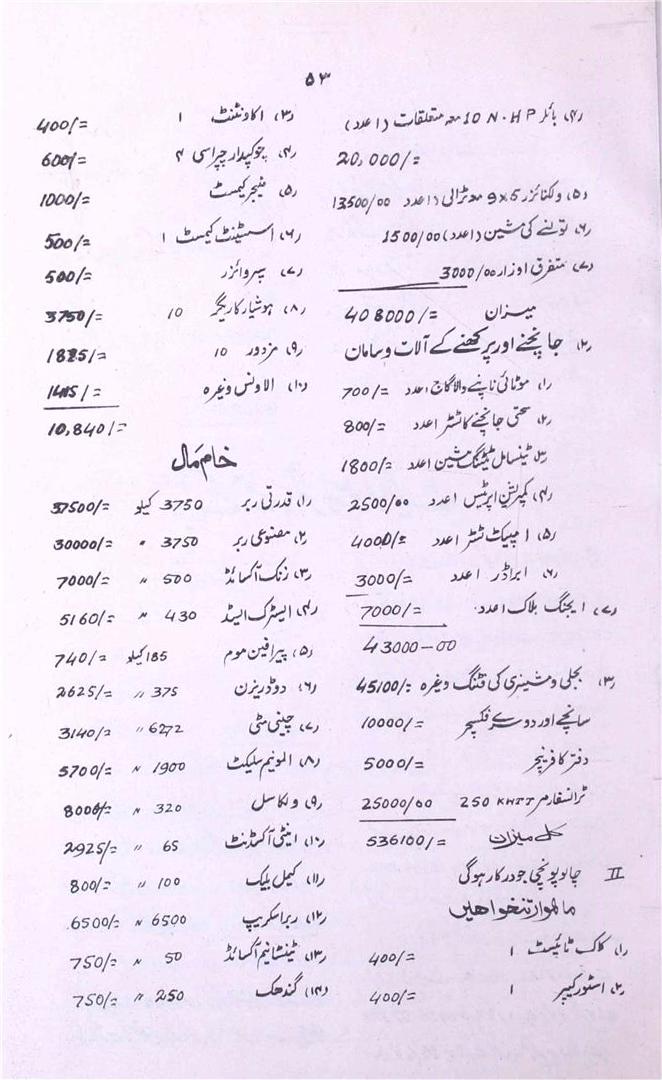 ۵۳
(۴) بائلر 10 N.HP معہ متعلقات (۱ عدد)
20,000/=
(۵) ولکنائزر 5×9 معہ ٹرالی (۱ عدد 13500/00
(۶) تولنے کی مشین (۱ عدد) 1500/00
(۷) متفرق اوزار 3000/00
میزان 408000/=
(۲) جانچنے اور پرکھنے کے آلات و سامان
(۱) موٹائی ناپنے والا گاج ۱ عدد 700/=
(۲) سختی جانچنے کا ٹسٹر ۱ عدد 800/=
(۳) ٹینسائل ٹیسٹنگ مشین ۱ عدد 1800/=
(۴) کمپرشن اپریٹس ۱ عدد 2500/00
(۵) امپیکٹ ٹسٹر ۱ عدد 4000/=
(۶) ابراڈر ۱ عدد 3000/=
(۷) ایجنگ بلاک ۱ عدد 7000/=
43000-00
(۳) بجلی و مشینری کی فٹنگ وغیرہ 45100/=
سانچے اور دوسرے فکسچر 10000/=
دفتر کا فرنیچر 5000/=
ٹرانسفارمر 250 KHTT 25000/00
کل میزان 536100/=
II چالو پونچی جو درکار ہوگی
ماہوار تنخواہیں
(۱) کلرک ٹائپسٹ ۱ 400/=
(۲) اسٹور کیپر ۱ 400/=
(۳) اکاونٹنٹ ۱ 400/=
(۴) چوکیدار چپراسی ۴ 600/=
(۵) منیجر کیمسٹ 1000/=
(۶) اسسٹینٹ کیمسٹ ۱ 500/=
(۷) سپروائزر 500/=
(۸) ہوشیار کاریگر 10 3750/=
(۹) مزدور 10 1885/=
(۱۰) الاونس وغیرہ 1415/=
10,840/=
خام مال
(۱) قدرتی ربر 3750 کیلو 37500/=
(۲) مصنوعی ربر 3750 " 30000/=
(۳) زنک آکسائڈ 500 " 7000/=
(۴) اسیٹرک ایسڈ 430 " 5160/=
(۵) پیرافین موم 185 کیلو 740/=
(۶) ووڈ ریزن 375 " 2625/=
(۷) چینی مٹی 6272 " 3140/=
(۸) المونیم سلیکٹ 1900 " 5700/=
(۹) ولکاسل 320 " 8000/=
(۱۰) اینٹی آکسڈنٹ 65 " 2925/=
(۱۱) کیمل بلیک 100 " 800/=
(۱۲) ربر اسکریپ 6500 " 6500/=
(۱۳) ٹینٹانیم آکسائڈ 50 " 750/=
(۱۴) گندھک 250 " 750/=